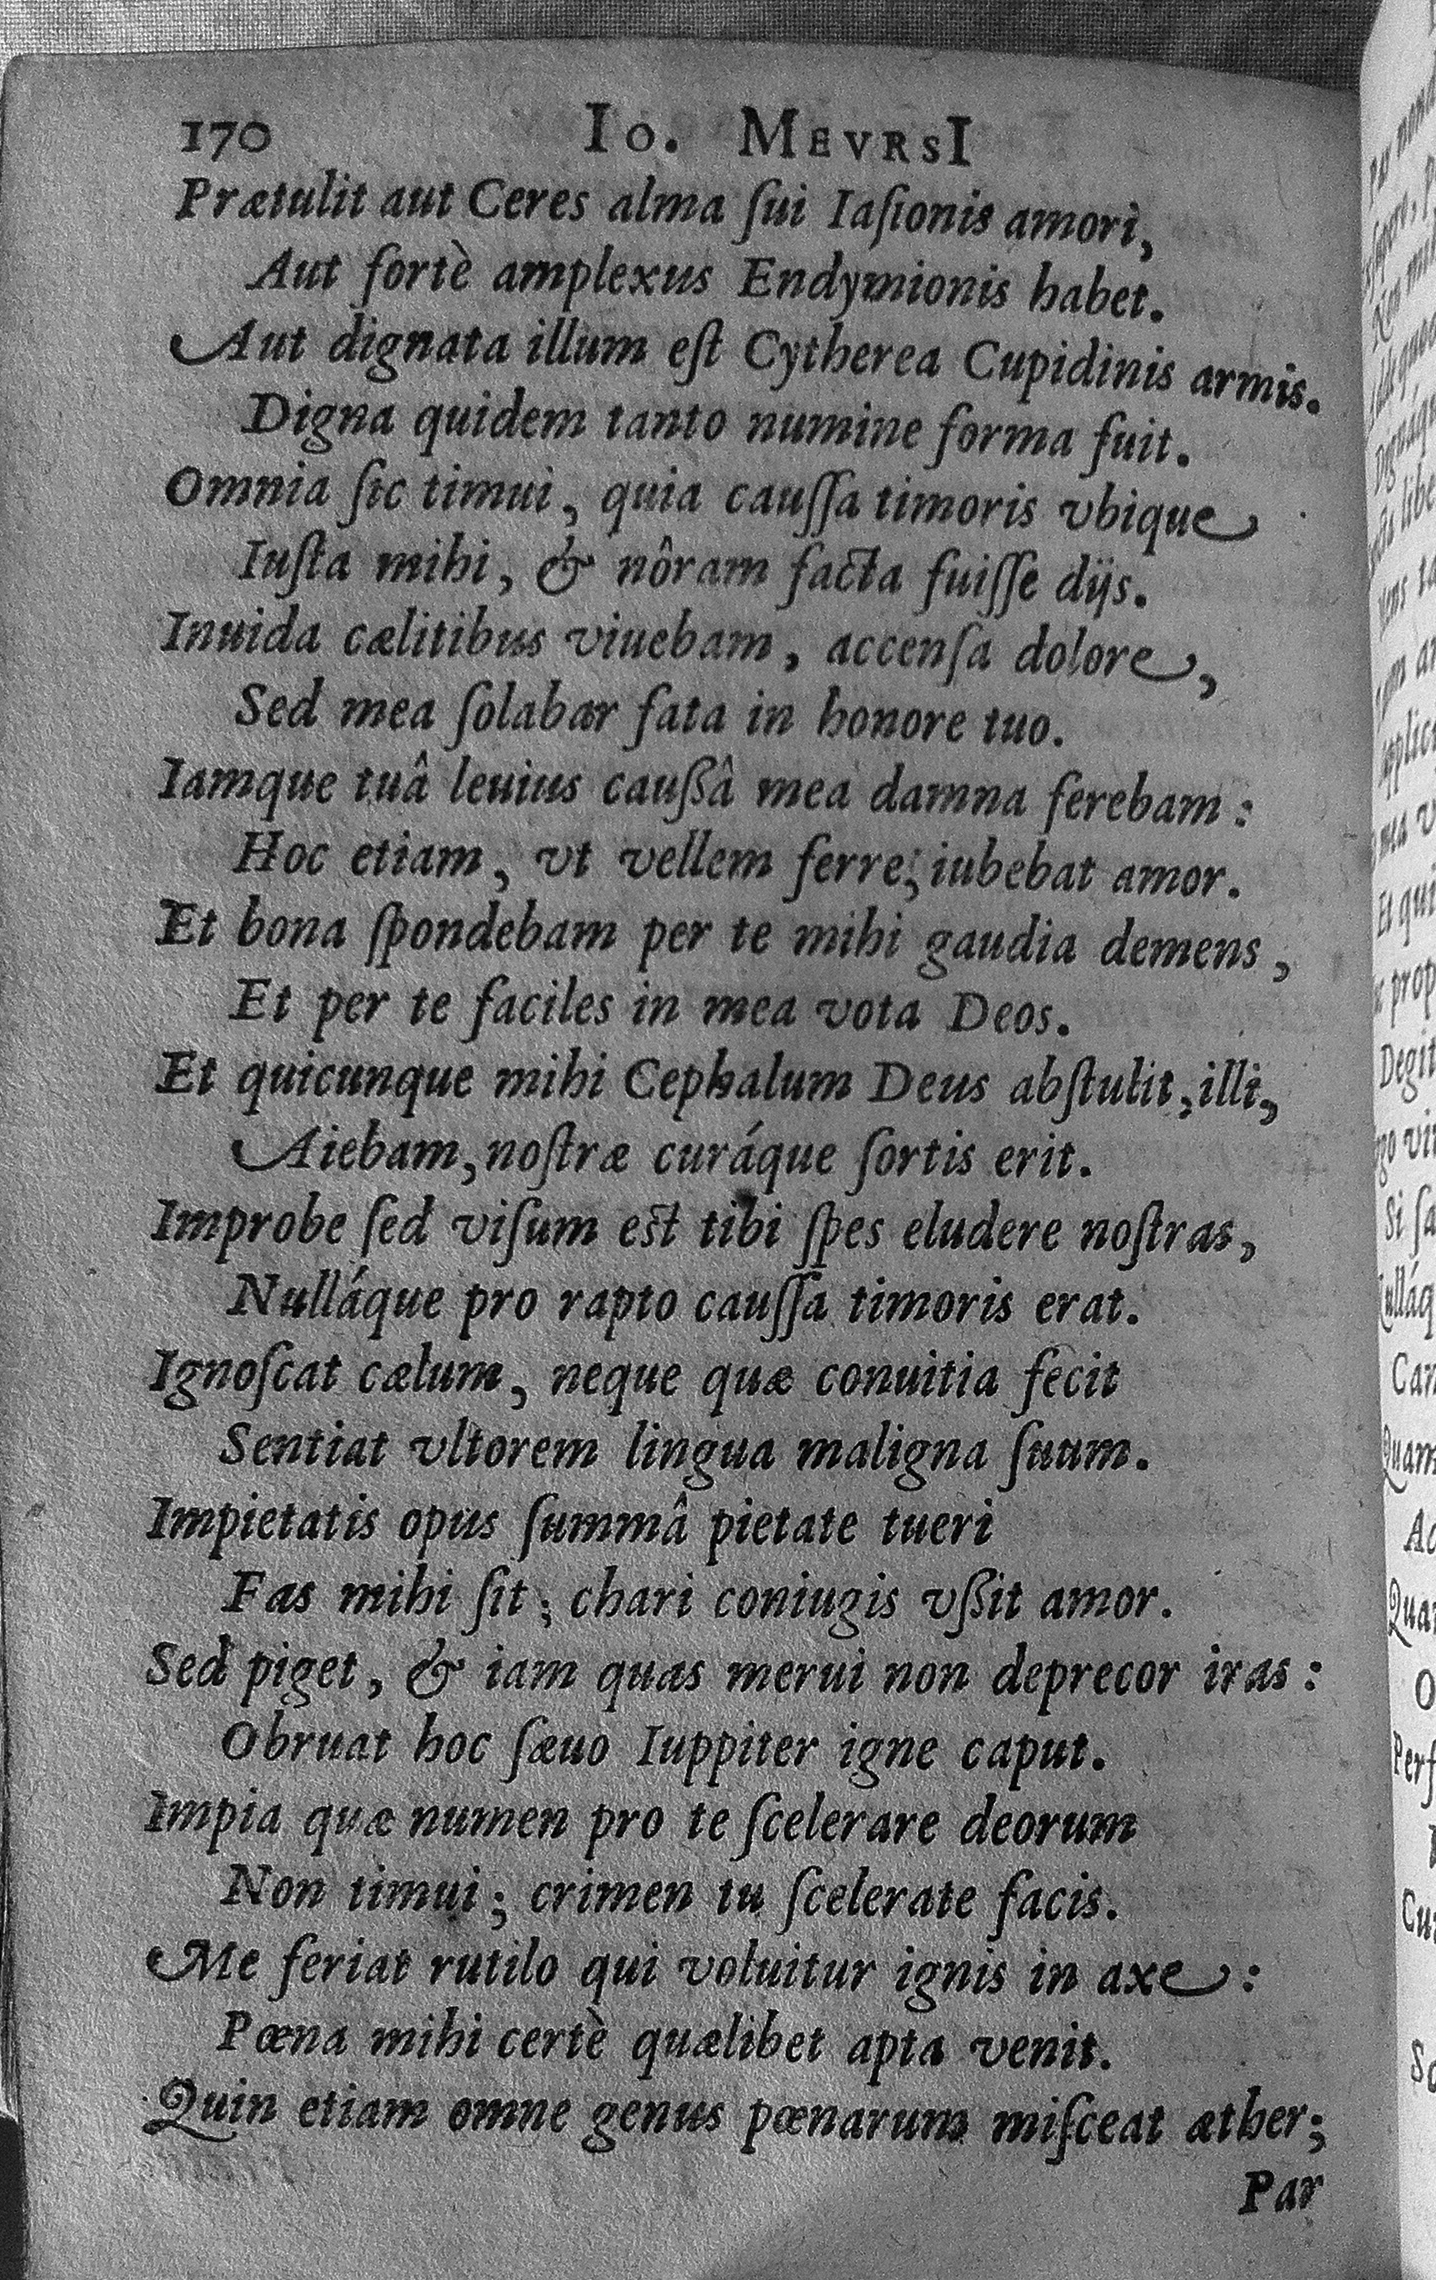 170 Io. MEVRSI
Prætulit aut Ceres alma ſui Iaſionis amori,
Aut fortè amplexus Endymionis habet.
Aut dignata illum eſt Cytherea Cupidinis armis.
Digna quidem tanto numine forma fuit.
Omnia ſic timui, quia cauſſa timoris vbique
Iuſta mihi, & nôram facta fuiſſe dijs.
Inuida cælitibus viuebam, accenſa dolore,
Sed mea ſolabar fata in honore tuo.
Iamque tuâ leuius caußâ mea damna ferebam:
Hoc etiam, vt vellem ferre, iubebat amor.
Et bona ſpondebam per te mihi gaudia demens,
Et per te faciles in mea vota Deos.
Et quicunque mihi Cephalum Deus abſtulit, illi,
Aiebam, noſtræ curáque ſortis erit.
Improbe ſed viſum eſt tibi ſpes eludere noſtras,
Nulláque pro rapto cauſſa timoris erat.
Ignoſcat cælum, neque quæ conuitia fecit
Sentiat vltorem lingua maligna ſuum.
Impietatis opus ſummâ pietate tueri
Fas mihi ſit; chari coniugis vßit amor.
Sed piget, & iam quas merui non deprecor iras:
Obruat hoc ſæuo Iuppiter igne caput.
Impia quæ numen pro te ſcelerare deorum
Non timui; crimen tu ſcelerate facis.
Me feriat rutilo qui voluitur ignis in axe:
Pœna mihi certè quælibet apta venit.
Quin etiam omne genus pœnarum miſceat æther;
Par